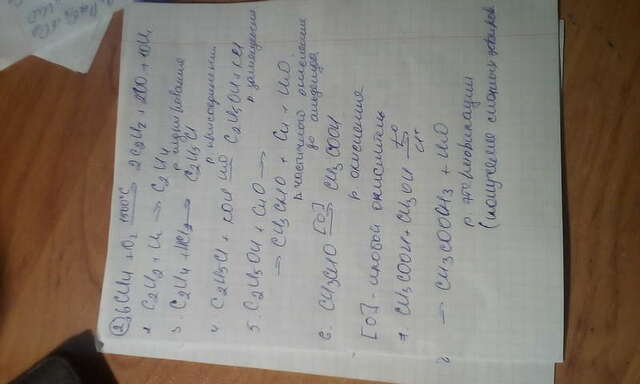 ② 6CH4 + O2 1500°C → 2C2H2 + 2CO + 10H2
2. C2H2 + H2 → C2H4
р гидрирования
3 C2H4 + HCl → C2H5Cl
р присоединения
4 C2H5Cl + KOH H2O → C2H5OH + KCl
р замещения
5. C2H5OH + CuO →
→ CH3CHO + Cu + H2O
р частичного окисления до альдегида
6. CH3CHO [O] → CH3COOH
р окисления
[O] - любой окислитель
7. CH3COOH + CH3OH t° → H+
→ CH3COOCH3 + H2O
р. этерификации
(получение сложных эфиров